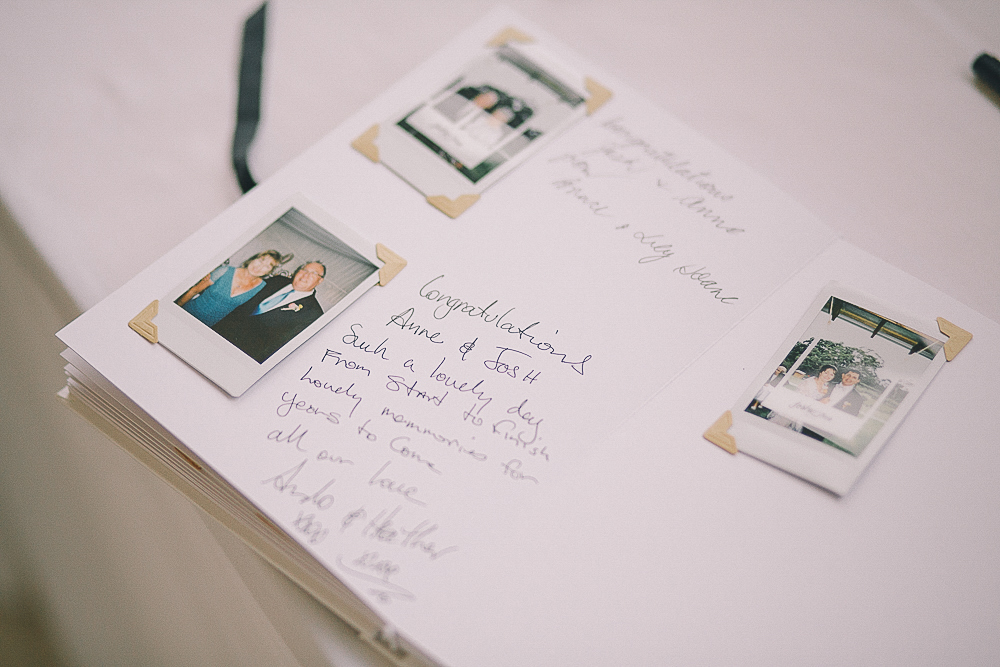 Congratulations
Josh & Anne
from
& Lily
Congratulations
Anne & Josh
Such a lovely day
From Start to Finish
Lovely memmories for
years to Come
all our love
& Heather